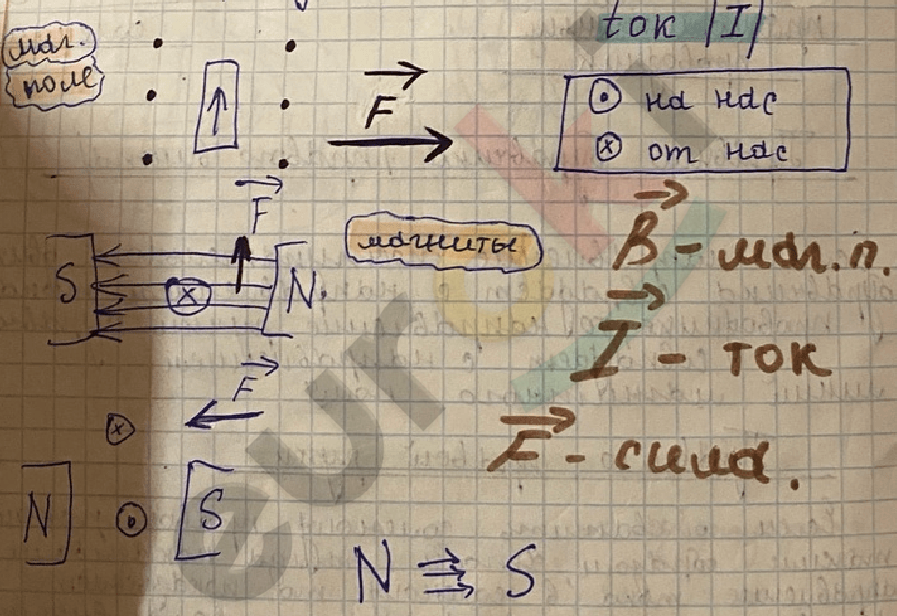 маг.
поле
ток |I|
F
⊙ на нас
⊗ от нас
F
магниты
S
N
B - маг.п.
I - ток
F
F - сила.
N
S
N ⇶ S
euroki